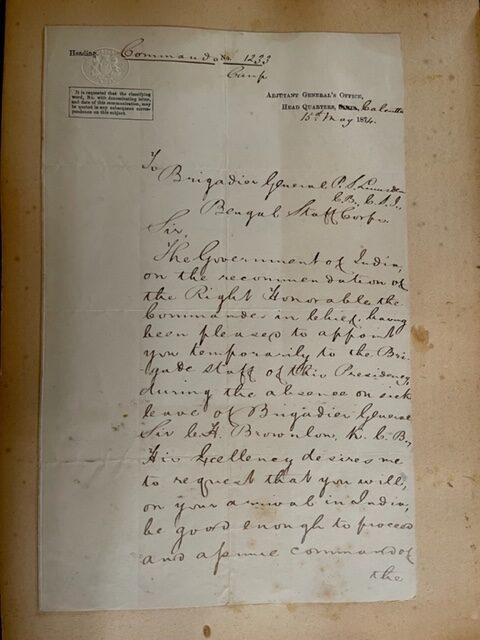 Heading Commands No. 1233
Camp
It is requested that the classifying
word, No. with denominating letter,
and date of this communication, may
be quoted in any subsequent corres-
pondence on this subject.
ADJUTANT GENERAL'S OFFICE,
HEAD QUARTERS, Calcutta
15th May 1874.
To
Brigadier General P. S. Lumsden
C.B., C.S.I.,
Bengal Staff Corps.
Sir,
The Government of India,
on the recommendation of
the Right Honorable the
Commander in Chief, having
been pleased to appoint
you temporarily to the Bri-
gade Staff of this Presidency,
during the absence on sick
leave of Brigadier General
Sir C. H. Brownlow, K.C.B.,
His Excellency desires me
to request that you will,
on your arrival in India,
be good enough to proceed
and assume command of
the